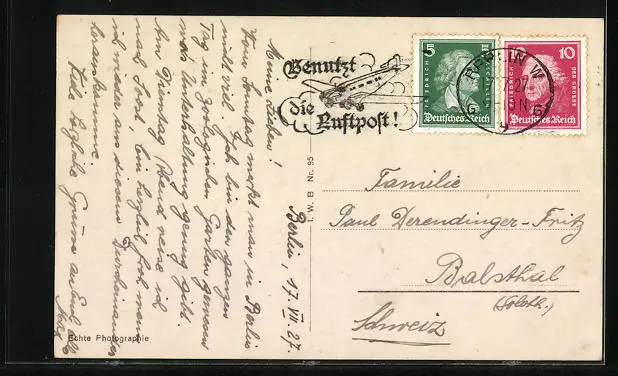 Benutzt
die
Luftpost!
5
FRIEDRICH
SCHILLER
Deutsches Reich
10
10
FRIEDRICH
DER GROSSE
Deutsches Reich
BERLIN W
27
N
9
Berlin, 17. VII. 27.
Meine Lieben!
Vom Sonntag merkt man in Berlin
nicht viel. Ich bin den ganzen
Tag im zoologischen Garten gewesen
wo's Unterhaltung genug gibt.
Am Dienstag Abend reise ich
nach Ich
ich wieder aus diesem Durcheinander
herauskomme.
Viele herzliche Grüsse an Euch alle
I. W. B. Nr. 95
Echte Photographie
Familie
Paul Derendinger-Fritz
Balsthal
(Soloth.)
Schweiz